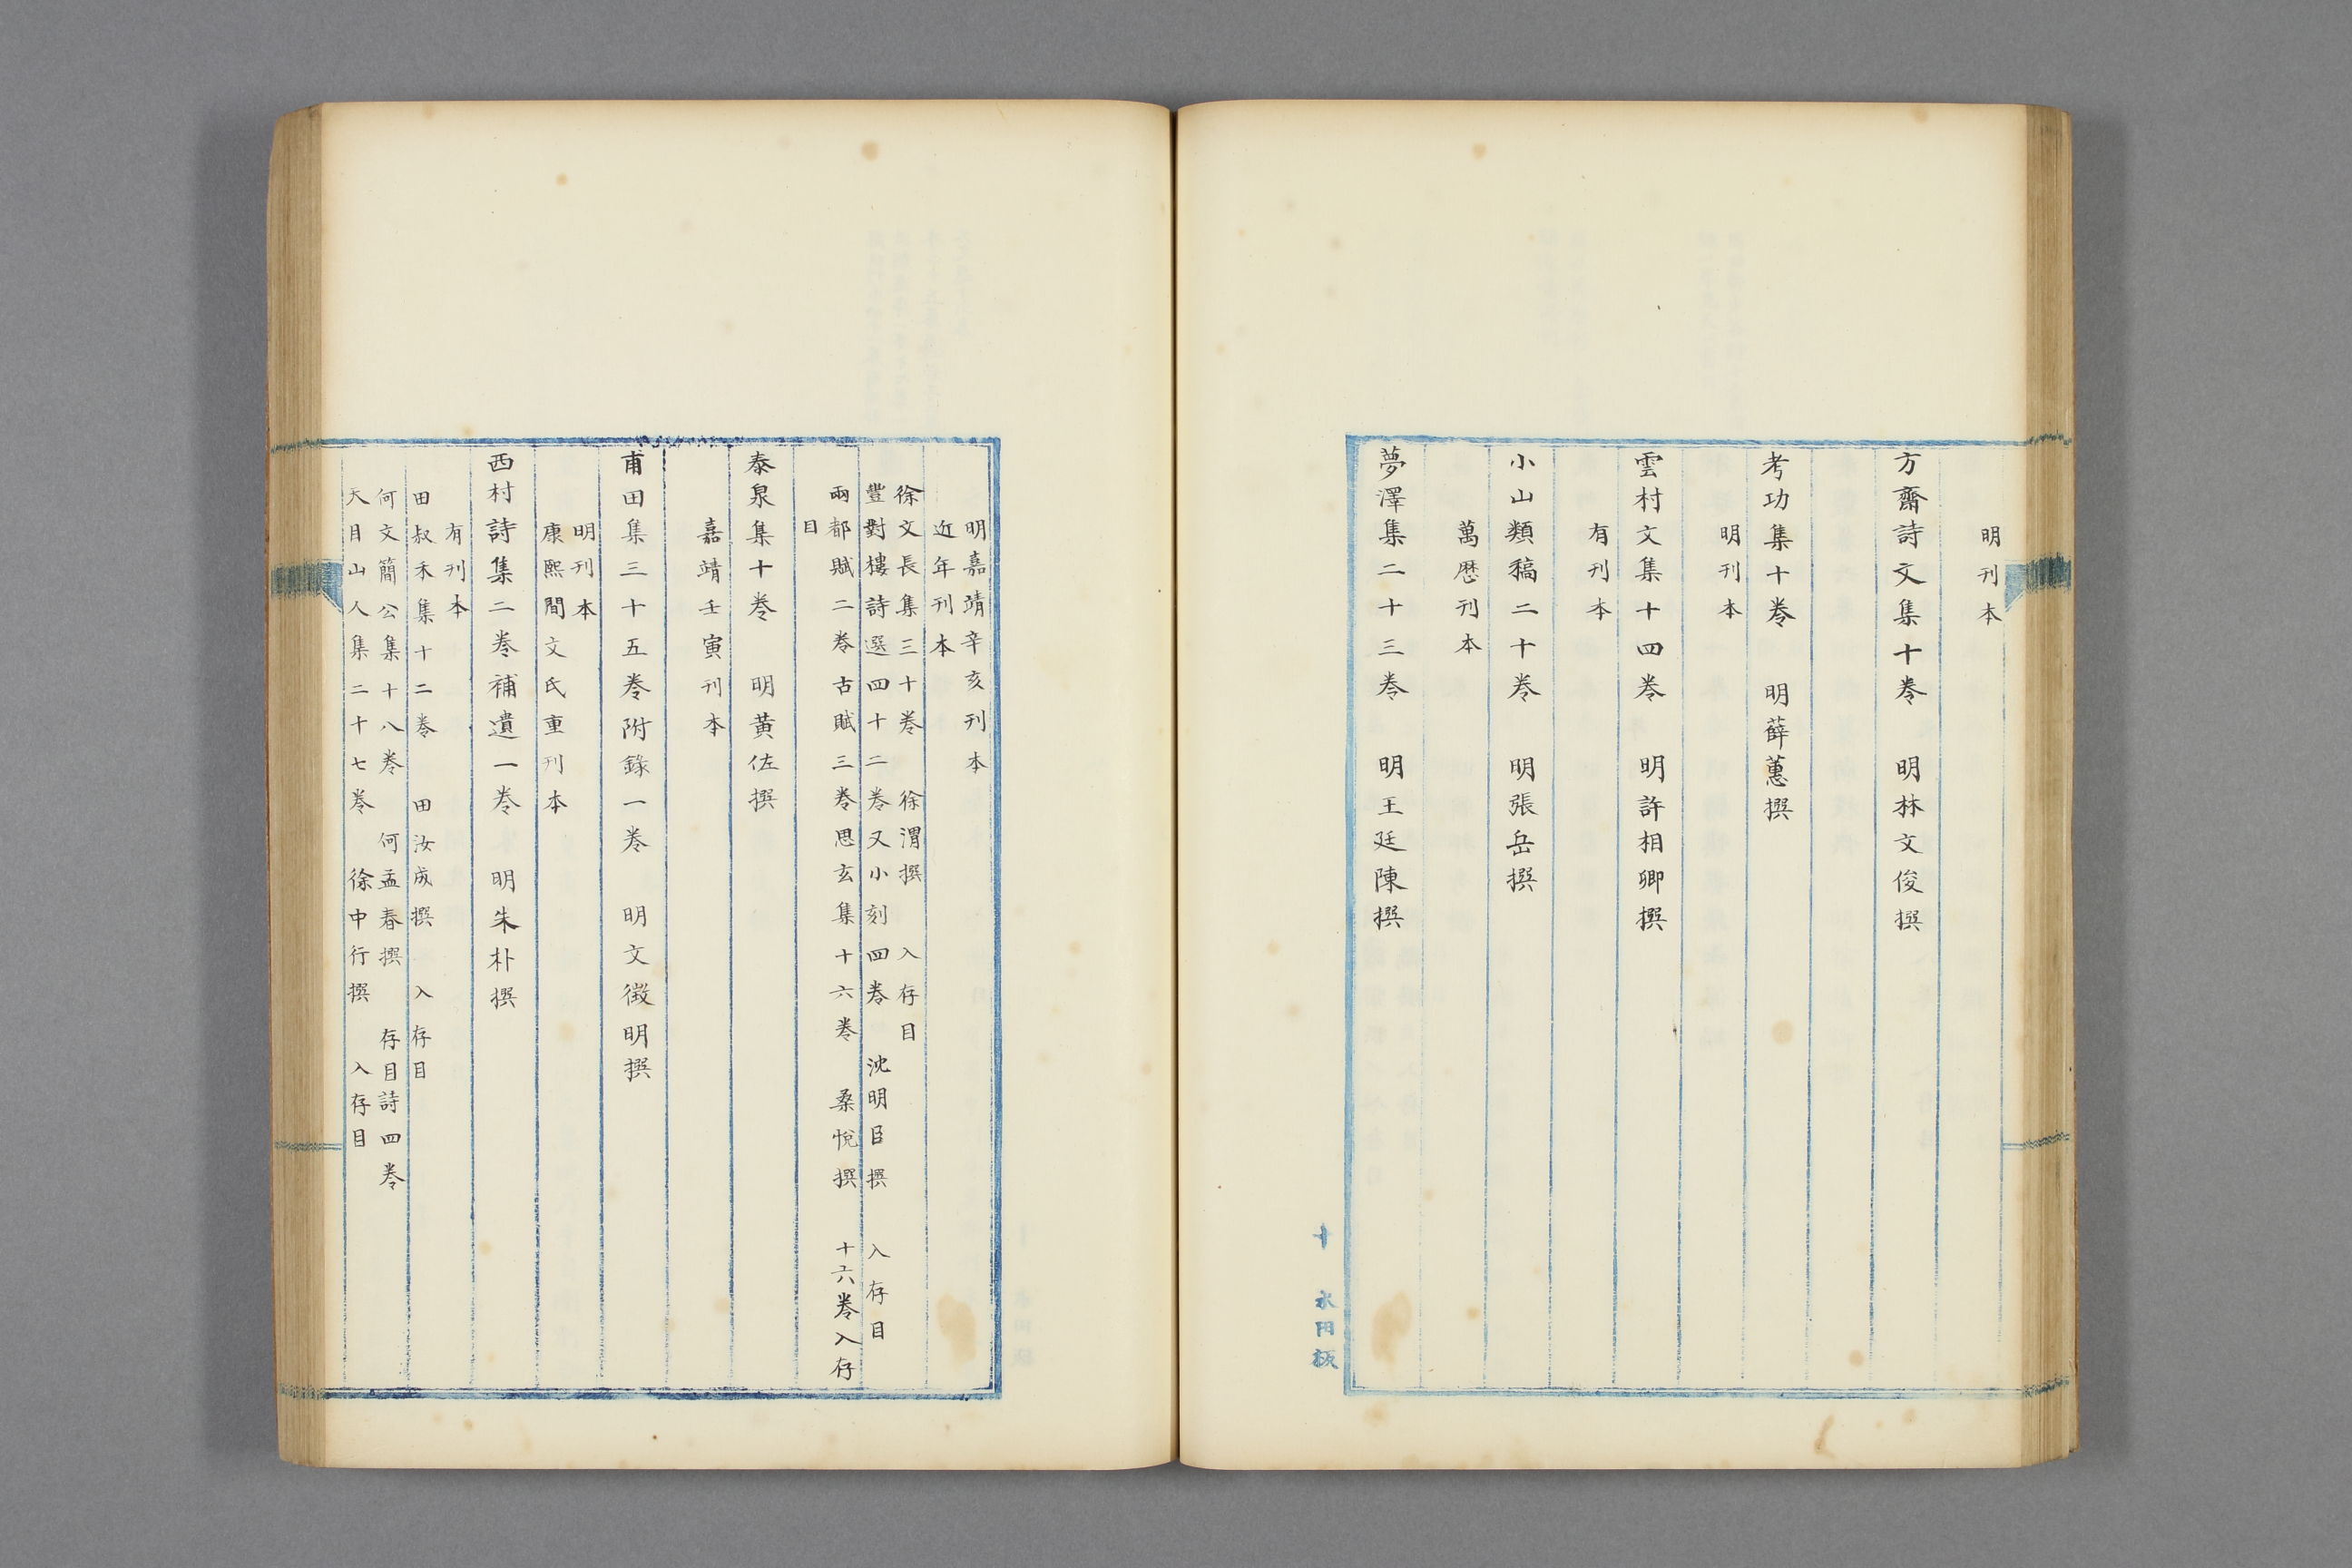 明刊本
方齋詩文集十卷　明林文俊撰
考功集十卷　明薛蕙撰
明刊本
雲村文集十四卷　明許相卿撰
有刊本
小山類稿二十卷　明張岳撰
萬歷刊本
夢澤集二十三卷　明王廷陳撰
十　永田板
明嘉靖辛亥刊本
近年刊本
徐文長集三十卷　徐渭撰　入存目
豐對樓詩選四十二卷又小刻四卷　沈明臣撰　入存目
兩都賦二卷古賦三卷思玄集十六卷　桑悅撰　十六卷入存
目
泰泉集十卷　明黃佐撰
嘉靖壬寅刊本
甫田集三十五卷附錄一卷　明文徵明撰
明刊本
康熙間文氏重刊本
西村詩集二卷補遺一卷　明朱朴撰
有刊本
田叔禾集十二卷　田汝成撰　入存目
何文簡公集十八卷　何孟春撰　存目詩四卷
天目山人集二十七卷　徐中行撰　入存目